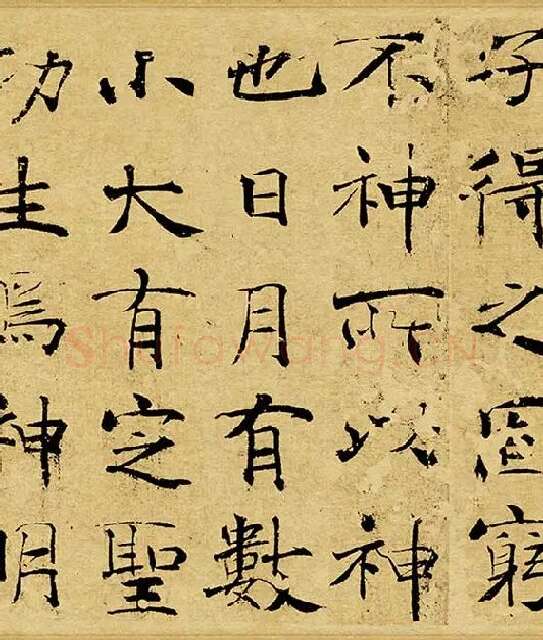 子得之固窮
不神所以神
也日月有數
小大有定聖
功生焉神明
Shufawang.CN